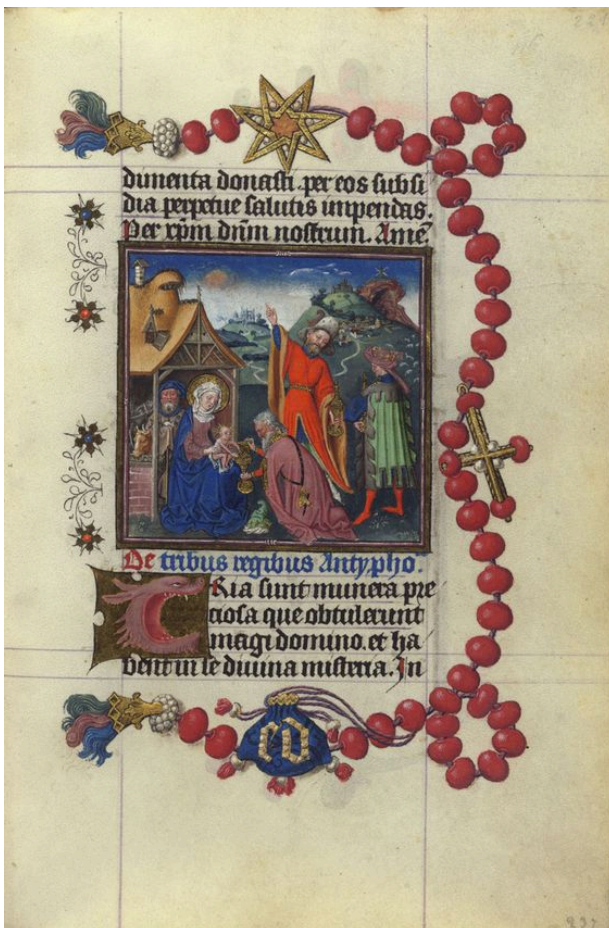 dimenta donasti. per eos subsi
dia perpetue salutis impendas.
Per xpm dnm nostrum. Ame
De tribus regibus Antypho.
Tria sunt munera pre
ciosa que obtulerunt
magi domino. et ha
bent in se divina misteria. In